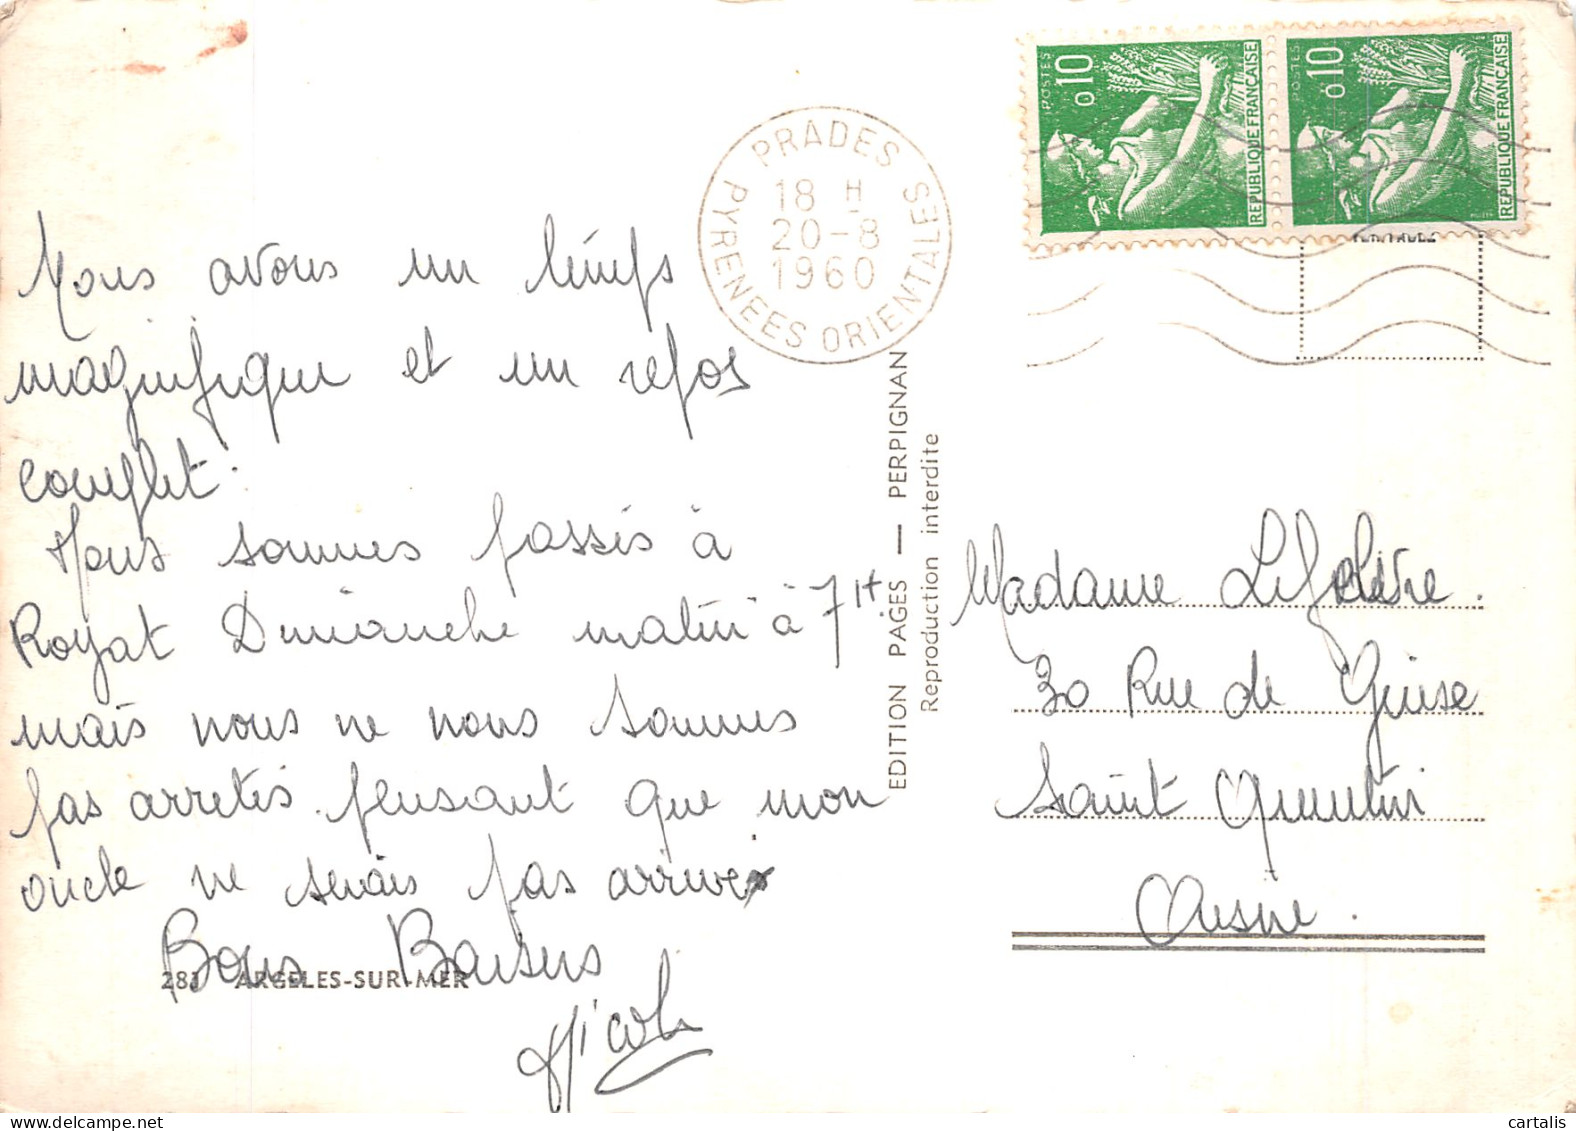 Nous avons un temps
magnifique et un repos
complet.
Nous sommes passés à
Royat Dimanche matin à 7H
mais nous ne nous sommes
pas arretés. pensant que mon
oncle ne serais pas arrivé
Bons Baisers
Nicole
283 ARGELES-SUR-MER
PRADES
18 H
20-8
1960
PYRENEES ORIENTALES
EDITION PAGES — PERPIGNAN
Reproduction interdite
POSTES
0,10
REPUBLIQUE FRANÇAISE
POSTES
0,10
REPUBLIQUE FRANÇAISE
Madame
30 Rue de Guise
Saint Quentin
Aisne.
cartalis